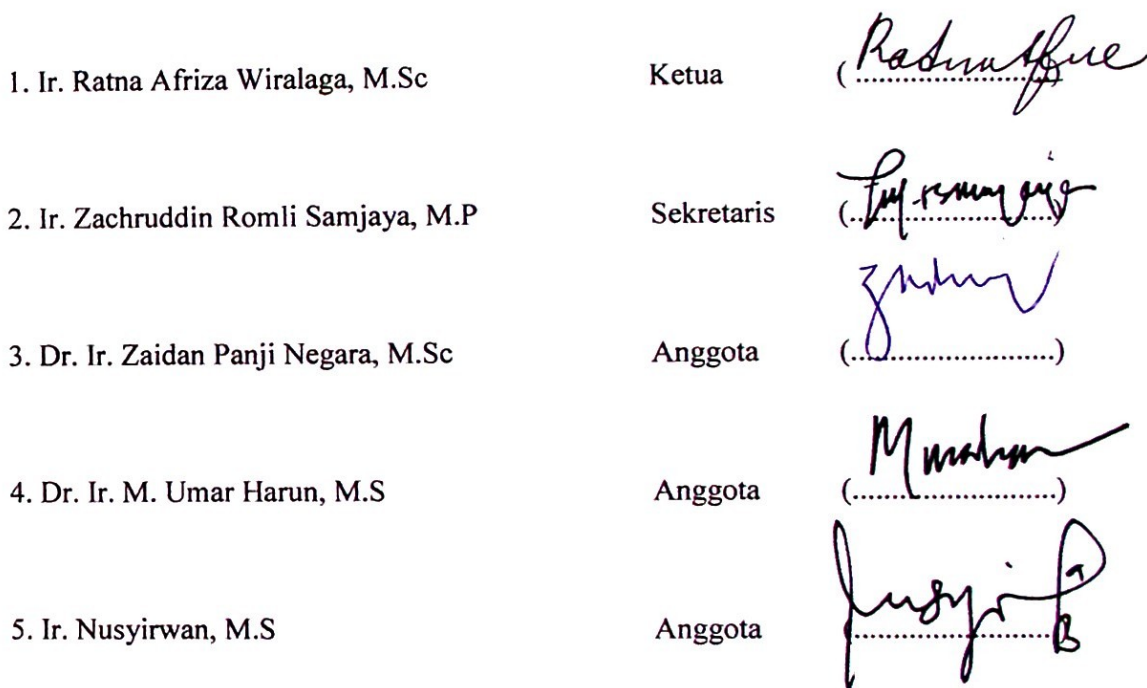 1. Ir. Ratna Afriza Wiralaga, M.Sc Ketua (....................)
2. Ir. Zachruddin Romli Samjaya, M.P Sekretaris (....................)
3. Dr. Ir. Zaidan Panji Negara, M.Sc Anggota (....................)
4. Dr. Ir. M. Umar Harun, M.S Anggota (....................)
5. Ir. Nusyirwan, M.S Anggota (....................)